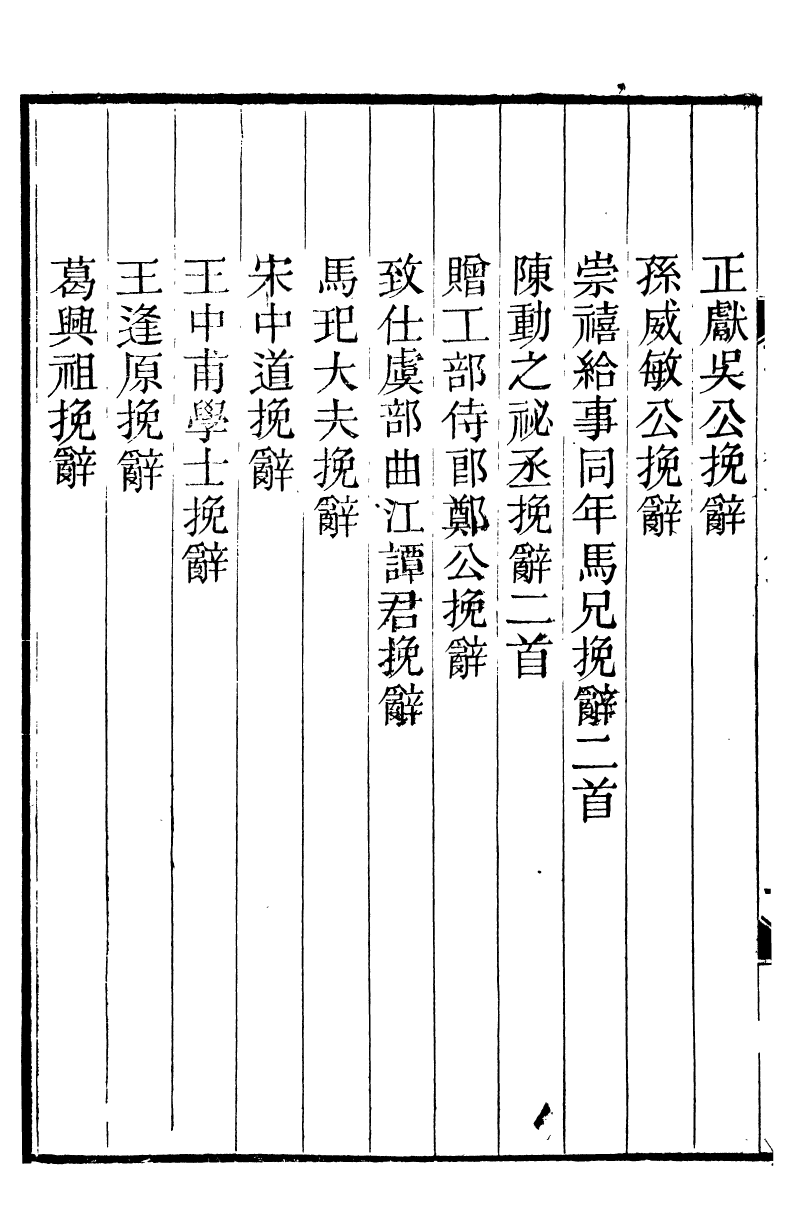 正獻吳公挽辭
孫威敏公挽辭
崇禧給事同年馬兄挽辭二首
陳動之祕丞挽辭二首
贈工部侍郎鄭公挽辭
致仕虞部曲江譚君挽辭
馬玘大夫挽辭
宋中道挽辭
王中甫學士挽辭
王逢原挽辭
葛興祖挽辭